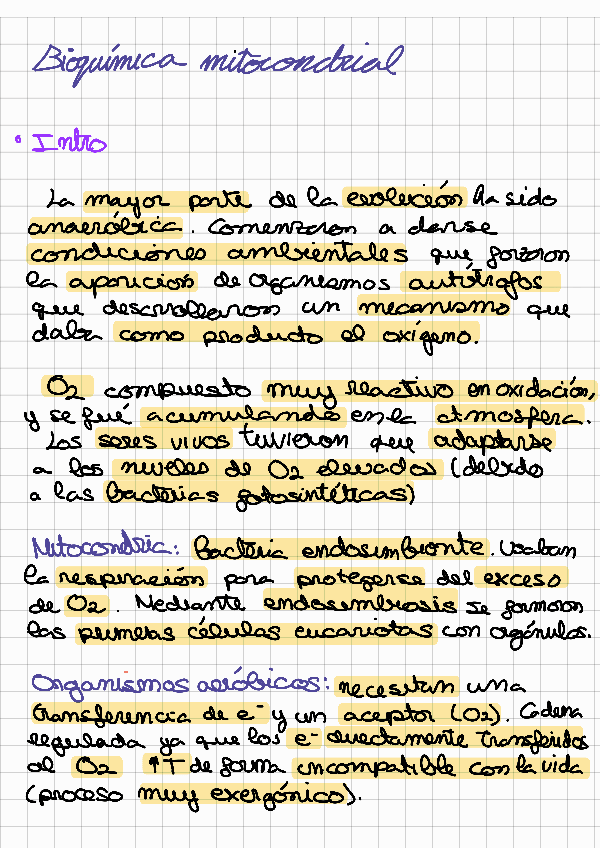 Bioquímica mitocondrial
• Intro
La mayor parte de la evolución ha sido
anaeróbica. Comenzaron a darse
condiciones ambientales que forzaron
la aparición de organismos autótrofos
que desarrollaron un mecanismo que
daba como producto el oxígeno.
O2 compuesto muy reactivo en oxidación,
y se fué acumulando en la atmosfera.
Los seres vivos tuvieron que adaptarse
a los niveles de O2 elevados (debido
a las bacterias fotosintéticas)
Mitocondria: Bacteria endosimbionte. Usaban
la respiración para protegerse del exceso
de O2. Mediante endosimbiosis se formaron
las primeras células eucariotas con orgánulos.
Organismos aeróbicos: necesitan una
transferencia de e⁻ y un aceptor (O2). Cadena
regulada ya que los e⁻ directamente transferidos
al O2 ↑T de forma incompatible con la vida
(proceso muy exergónico).